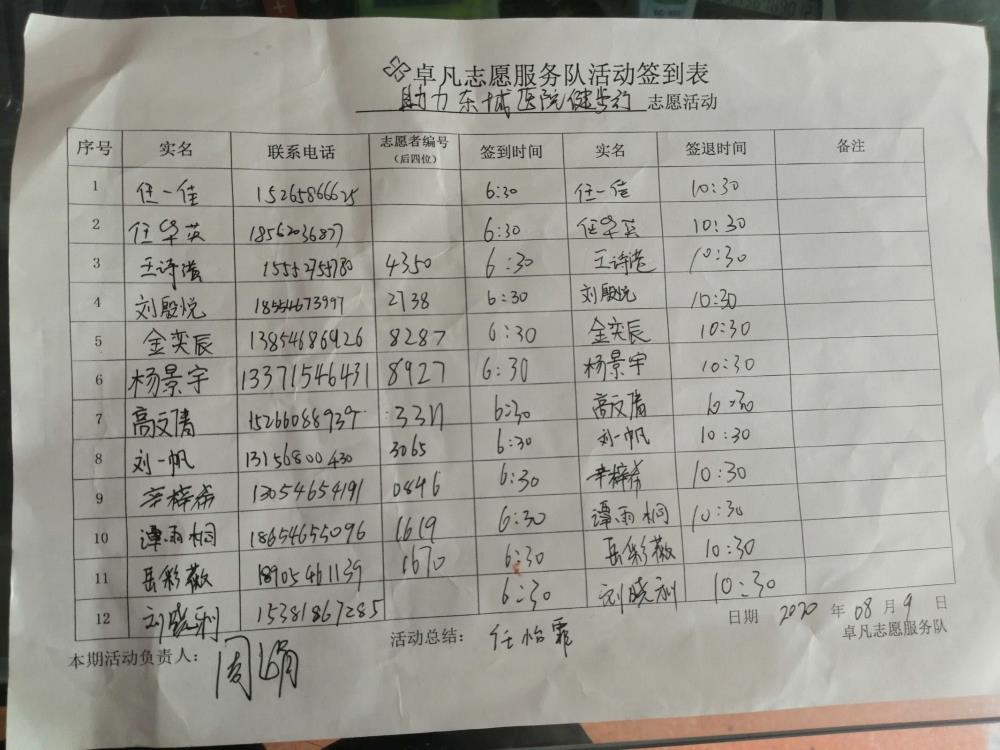 卓凡志愿服务队活动签到表
助力东城医院健步行 志愿活动
序号 实名 联系电话 志愿者编号（后四位） 签到时间 实名 签退时间 备注
1 任一佳 15265866625 6:30 任一佳 10:30
2 任华英 18562036877 6:30 任华英 10:30
3 王诗 15552755780 4350 6:30 王诗 10:30
4 刘殷悦 18554673997 2738 6:30 刘殷悦 10:30
5 金奕辰 13854686926 8287 6:30 金奕辰 10:30
6 杨景宇 13371546431 8927 6:30 杨景宇 10:30
7 高文清 15266088939 6:30 高文清 10:30
8 刘一帆 13156800430 3065 6:30 刘一帆 10:30
9 辛梓希 13054654191 0846 6:30 辛梓希 10:30
10 谭雨桐 18654655096 1619 6:30 谭雨桐 10:30
11 岳彩薇 18905461139 1670 6:30 岳彩薇 10:30
12 刘晓利 15381867285 6:30 刘晓利 10:30
日期 2020 年 08 月 9 日
本期活动负责人： 周娟 活动总结： 任怡霏 卓凡志愿服务队